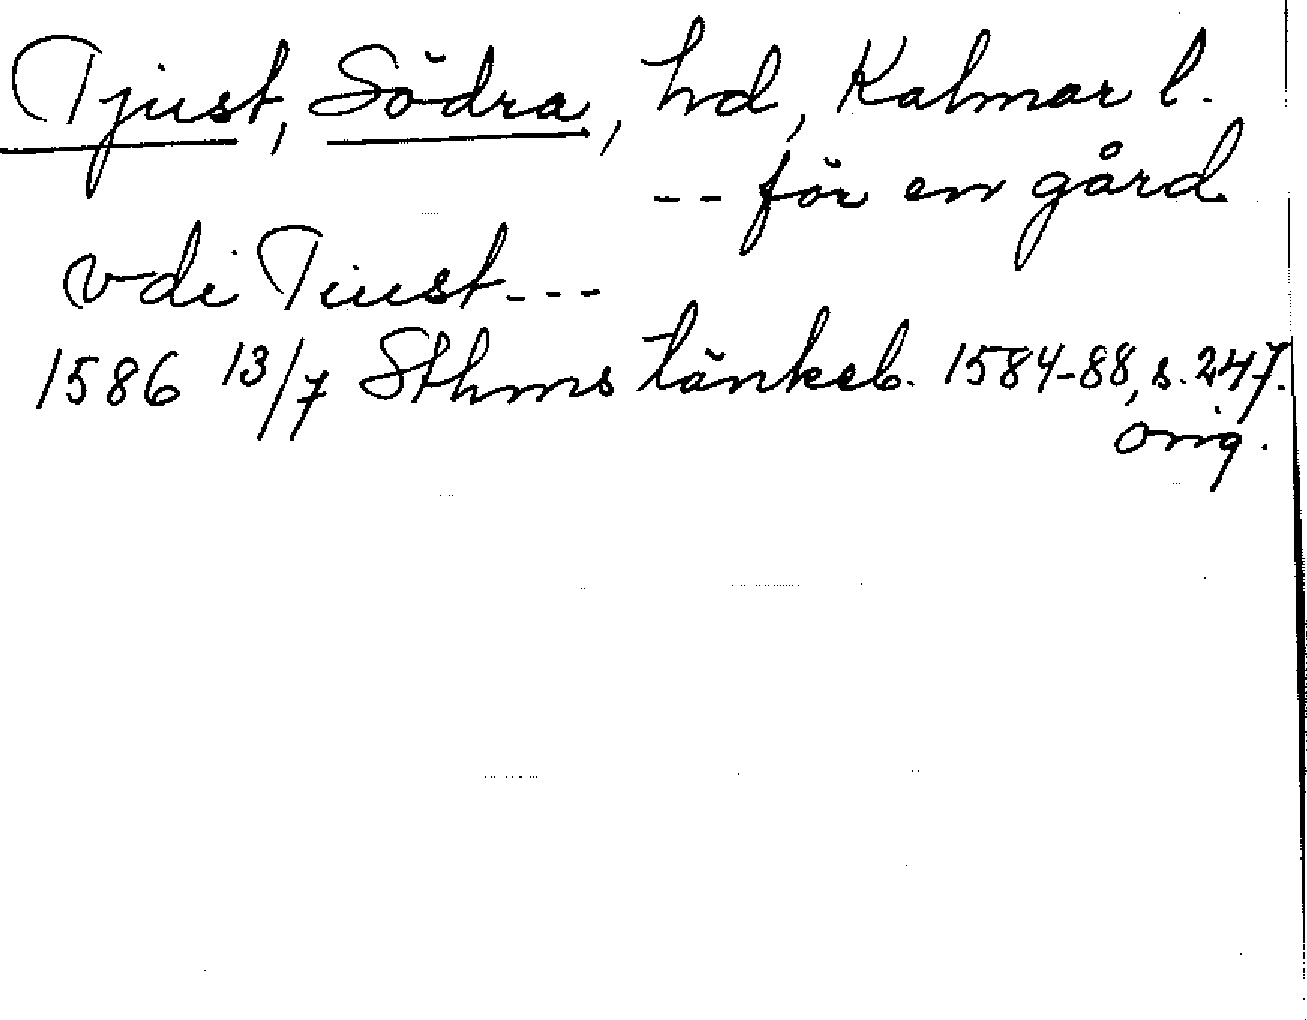 Tjust, Södra, hd, Kalmar l.
-- för en gård
vdi Tiust---
1586 13/7 Sthms tänkeb. 1584-88, s. 247.
orig.